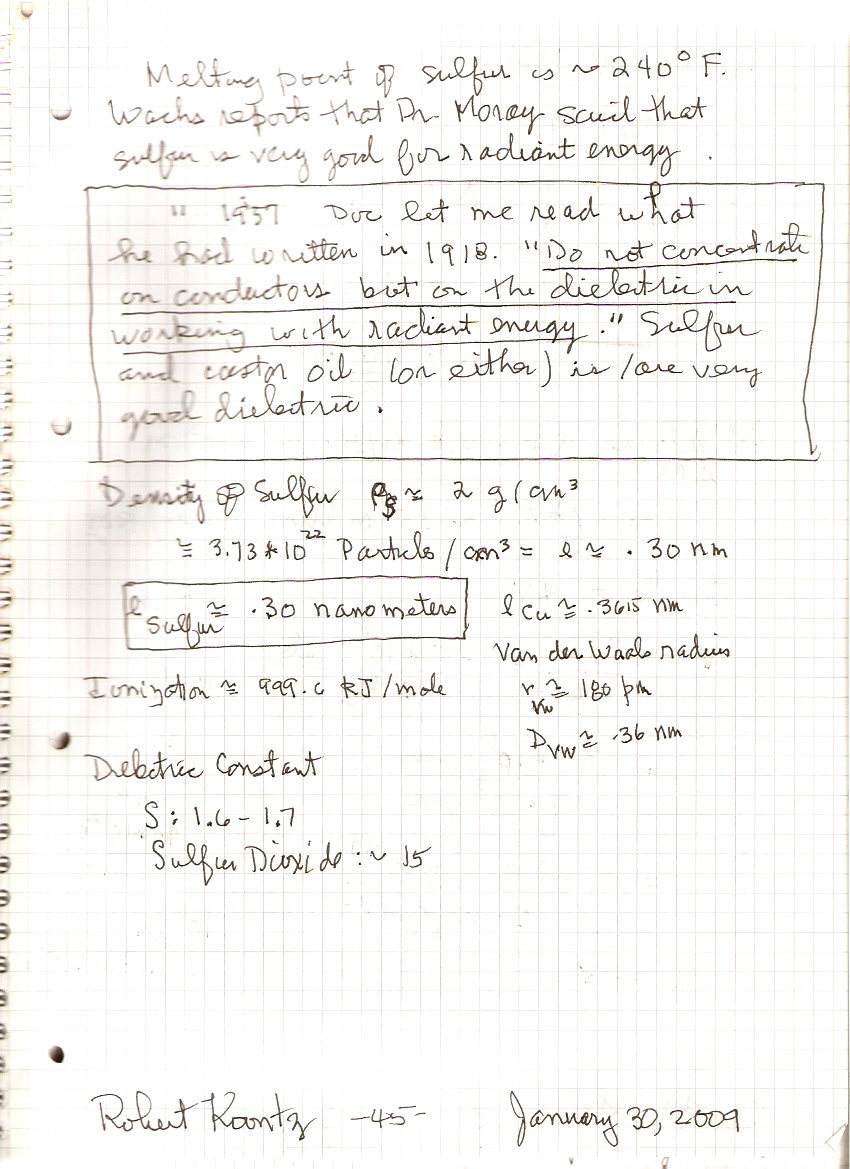 Melting point of sulfur is ~ 240° F.
Wachs reports that Dr. Moray said that
sulfur is very good for radiant energy .
" 1957 Doc let me read what
he had written in 1918. "Do not concentrate
on conductors but on the dielectric in
working with radiant energy." Sulfur
and castor oil (or either) is /are very
good dielectric .
Density of Sulfur ρs ≈ 2 g/cm³
≅ 3.73 * 10²² Particles / cm³ = l ≈ .30 nm
l Sulfur ≅ .30 nanometers
l Cu ≅ .3615 nm
Van der Waals radius
Ionization ≅ 999.6 kJ/mole
r vw ≅ 180 pm
D vw ≅ .36 nm
Dielectric Constant
S: 1.6 - 1.7
Sulfur Dioxide : ~ 15
Robert Koontz -45- January 30, 2009